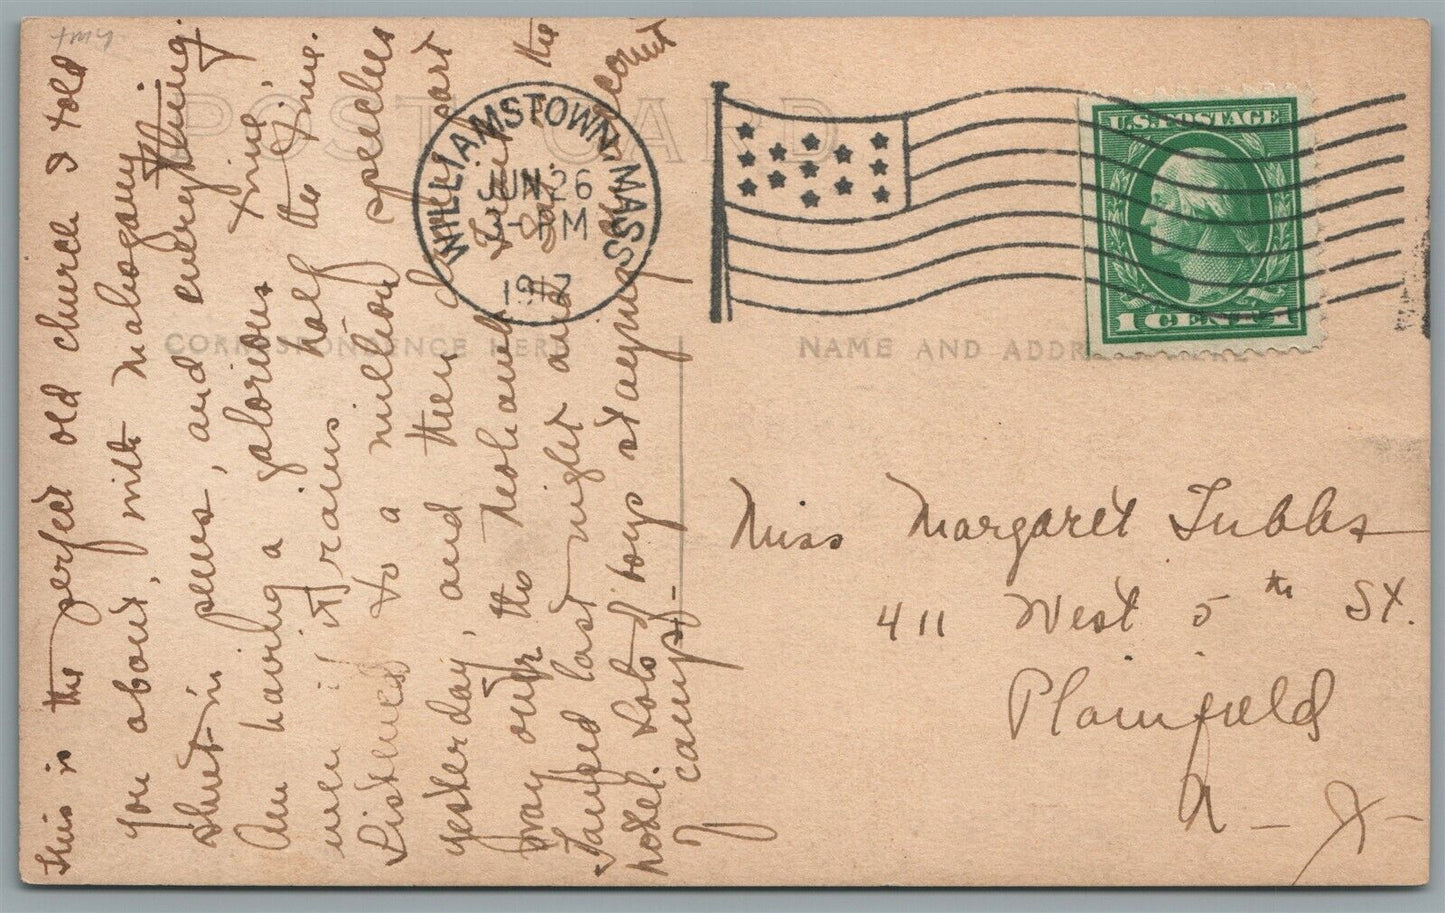 POST CARD
CORRESPONDENCE HERE
NAME AND ADDR
WILLIAMSTOWN, MASS
JUN 26
3-PM
1917
U.S. POSTAGE
1 CENT 1
Miss Margaret Tubbs
411 West 5th St.
Plainfield
N- J-
This is the perfect old church I told
you about, with mahogany
shut-in pews, and everything.
Am having a glorious time,
even if it rains half the time.
Listened to a million speeches
yesterday, and then d part
way out the Mohawk Trail
Taufed last night and the
hotel. Lots of boys staying count
of camp-